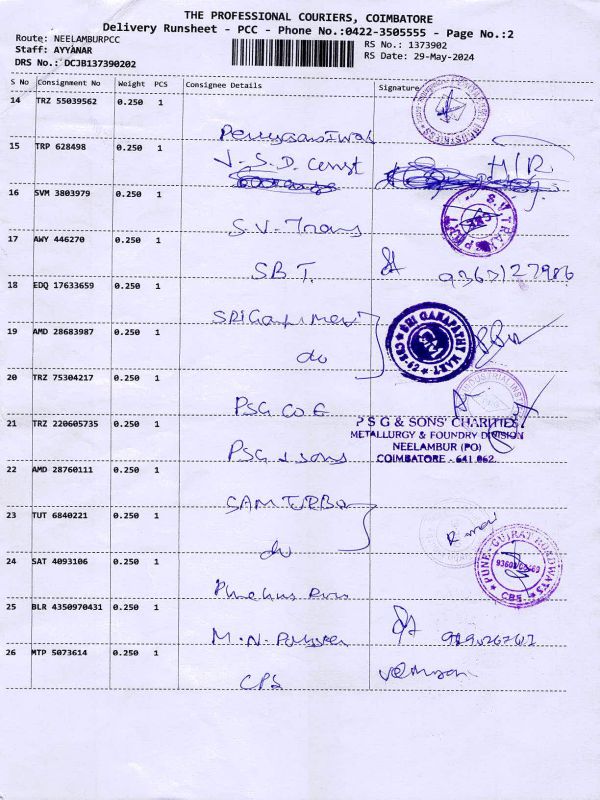 THE PROFESSIONAL COURIERS, COIMBATORE
Delivery Runsheet - PCC - Phone No.:0422-3505555 - Page No.:2
Route: NEELAMBURPCC
Staff: AYYANAR
DRS No.: DCJB137390202
RS No.: 1373902
RS Date: 29-May-2024
S No Consignment No Weight PCS Consignee Details Signature
14 TRZ 55039562 0.250 1
15 TRP 628498 0.250 1 J.S.D. Const H/R
16 SVM 3803979 0.250 1 S.V. Trans
S.V TRANSPORT
17 AWY 446270 0.250 1 SBT.
18 EDQ 17633659 0.250 1
SRI GANAPATHY MART
19 AMD 28683987 0.250 1 do
20 TRZ 75304217 0.250 1 PSG CO E
21 TRZ 220605735 0.250 1 PSG & sons
P S G & SONS' CHARITIES
METALLURGY & FOUNDRY DIVISION
NEELAMBUR (PO)
COIMBATORE - 641 062.
22 AMD 28760111 0.250 1 SAM TURBO
23 TUT 6840221 0.250 1 do
24 SAT 4093106 0.250 1
PUNE-GUJRAT ROADWAYS
CBE
25 BLR 4350970431 0.250 1 M.N.
26 MTP 5073614 0.250 1 CPS